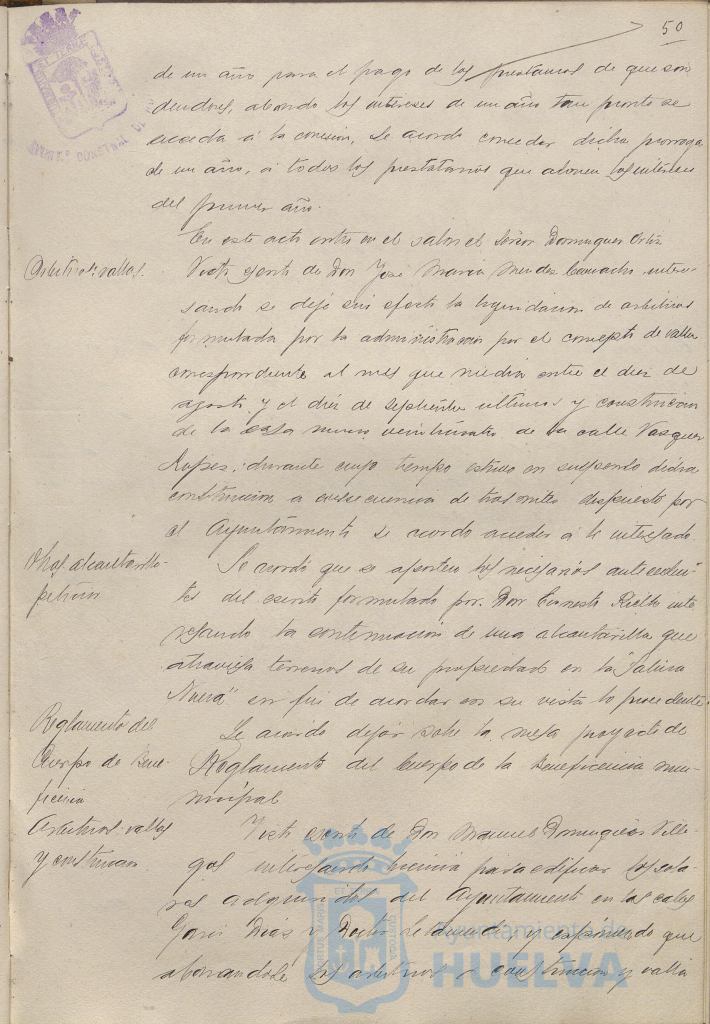 50
de un año para el pago de los prestamos de que son
deudores, abonando los intereses de un año tan pronto se
acceda á la conexión, Se acordo conceder dicha prorroga
de un año, á todos los prestatarios que abonen los intereses
del primer año.
En este acto entro en el salon el Señor Dominguez Ortiz
Arbitrios: vallas.
Visto escrito de Don José Maria Mendez Camacho intere-
sando se deje sin efecto la liquidacion de arbitrios
formulada por la administracion por el concepto de valla
correspondiente al mes que media entre el diez de
agosto y el diez de septiembre ultimos y construccion
de la casa numero veinticuatro de la calle Vasquez
Lopez, durante cuyo tiempo estuvo en suspenso dicha
construccion a consecuencia de trasmites dispuesto por
el Ayuntamiento se acordo acceder á lo interesado.
alcantarilla
petición
Se acordó que se aporten los necesarios anteceden-
tes del escrito formulado por Don Ernesto inte
resando la continuacion de una alcantarilla que
atraviesa terrenos de su propiedad en la "Salina
Nueva" en fin de acordar con su vista lo procedente.
Reglamento del
Cuerpo de Bene-
ficencia
Se acordo dejar sobre la mesa proyecto de
Reglamento del Cuerpo de la Beneficencia mu-
nicipal
Arbitrios: vallas
y construccion
Visto escrito de Don Manuel Dominguez Ville-
gas interesando licencia para edificar los sola-
res adquiridos del Ayuntamiento en las calles
Garci Diaz y Doctor y exponiendo que
abonandole los arbitrios de construccion y valla
Ayuntamiento de
HUELVA